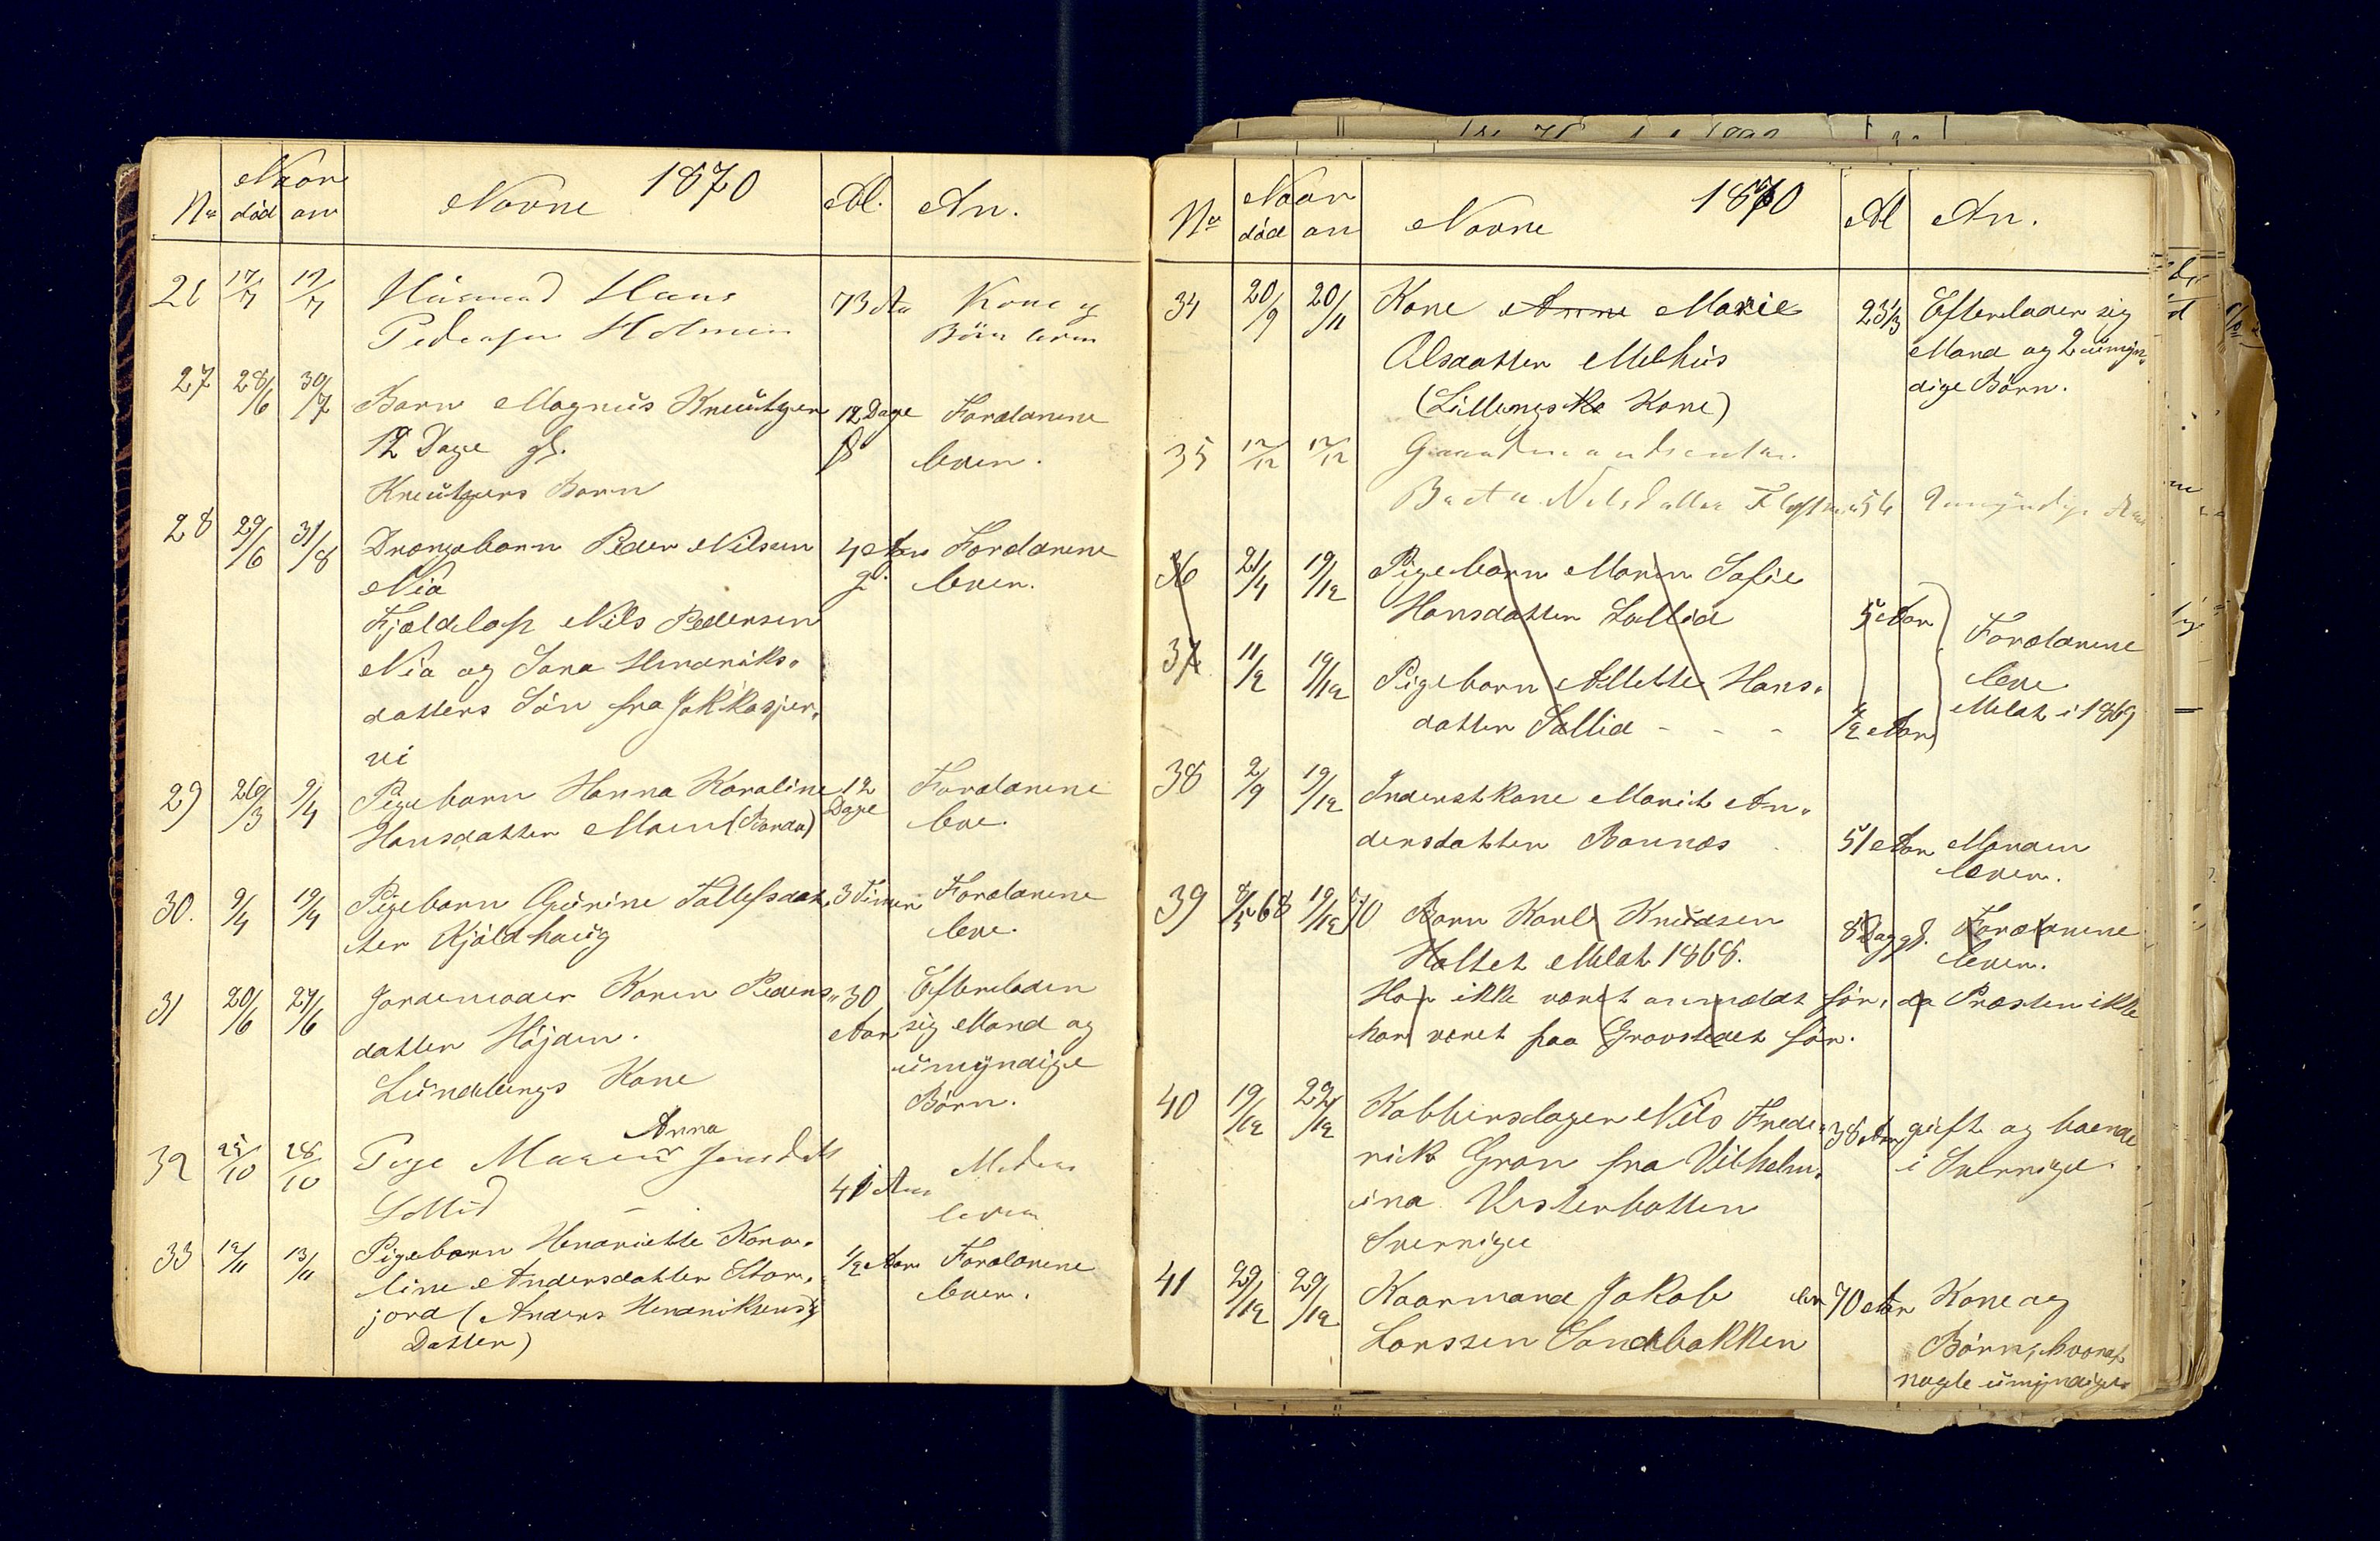 1870
Naar
No død an Navne Al. An.
26 17/7 19/7 Husmand Hans 73 Aar Kone og
Pedersen Holmen Börn lever
27 28/6 30/7 Barn Magnus Kreutzer 12 Dage Forældrene
12 Dage gl. gl lever.
Kreutzers Barn
28 29/6 31/8 Drængebarn Peder Nilsen 4 Aar Forældrene
Nia gl. lever.
Fjeldlap Nils Pedersen
Nia og Sara Hendriks-
datters Sön fra Jokkasjer-
vi
29 26/3 9/4 Pigebarn Hanna Karoline 12 Forældrene
Hansdatter Moen (Borda) Dage leve.
30. 9/4 19/4 Pigebarn Gurine Tollefsdat- 3 Timer Forældrene
ter Kjöldhaug leve.
31 20/6 27/6 Jordemoder Karen Peders- 30 Efterlader
datter Höjden. Aar sig Mand og
Lündlings Kone umyndige
Börn.
Anna
32 25/10 28/10 Pige Maren Jensdatt
Sollid 41 Aar Moder
lever
33 12/11 13/11 Pigebarn Henriette Karo-
line Andersdatter Stor- 1/2 Aar Forældrene
jord (Anders Hendriksens lever.
Datter)
1870
Naar
No død an Navne Al An.
34 20/9 20/11 Kone Anne Marie 23 1/3 Efterlader sig
Olsdatter Melhus Mand og 2 umyn-
(Lillengs Kone) dige Börn.
35 12/12 17/12 Gaardmandsenke
Berta Nilsdatter 56 2 umyndige
36 21/4 19/12 Pigebarn Maren Sofie
Hansdatter Sollid 5 Aar Forældrene
37 11/2 19/12 Pigebarn Allette Hans- leve
datter Sollid - - - 1/2 Aar Meldt i 1869
38 2/9 19/12 Inderstkone Marit An-
dersdatter Bonnes 51 Aar Manden
lever.
39 8/5 68 19/12 70 Barn Karl Knudsen 8 Dag gl. Forældrene
Holtet Meldt 1868. lever.
Har ikke været anmeldt för, da Præsten ikke
har været paa Gravstedet för.
40 19/12 22/12 Kobberslager Nils Frede- 38 Aar gift og boende
rik Gran fra Vilhelm- i Sverrige.
ina Vesterbotten
Sverrige
41 29/12 29/12 Kaarmand Jakob 70 Aar Kone og
Larssen Sandbakken Börn, hvoraf
nogle umyndige.